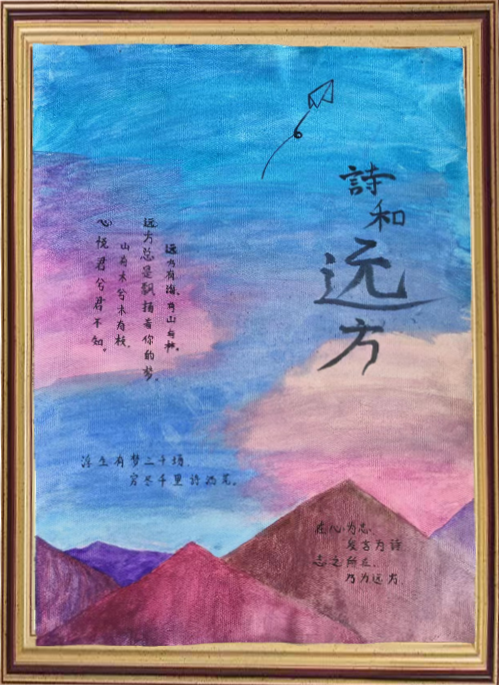 詩和远方
远方有海、有山有林。
远方总是飘扬着你的梦。
山有木兮木有枝,
心悦君兮君不知。
浮生有梦三千场
穷尽千里诗酒荒。
在心为志
发言为诗
志之所在,
乃为远方